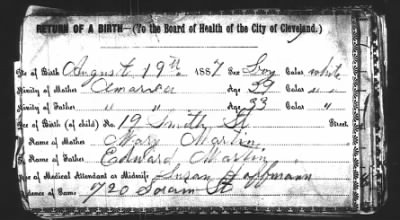 RETURN OF A BIRTH—(To the Board of Health of the City of Cleveland.)
te of Birth August 19th 1887 Sex Boy Color white
tivity of Mother America Age 29 Color " "
tivity of Father " " Age 33 Color "
ce of Birth (of child) No. 19 Smith St Street.
Name of Mother Mary Martin
Name of Father Edward Martin
me of Medical Attendant or Midwife Susan Hoffmann
idence of Same 720 St